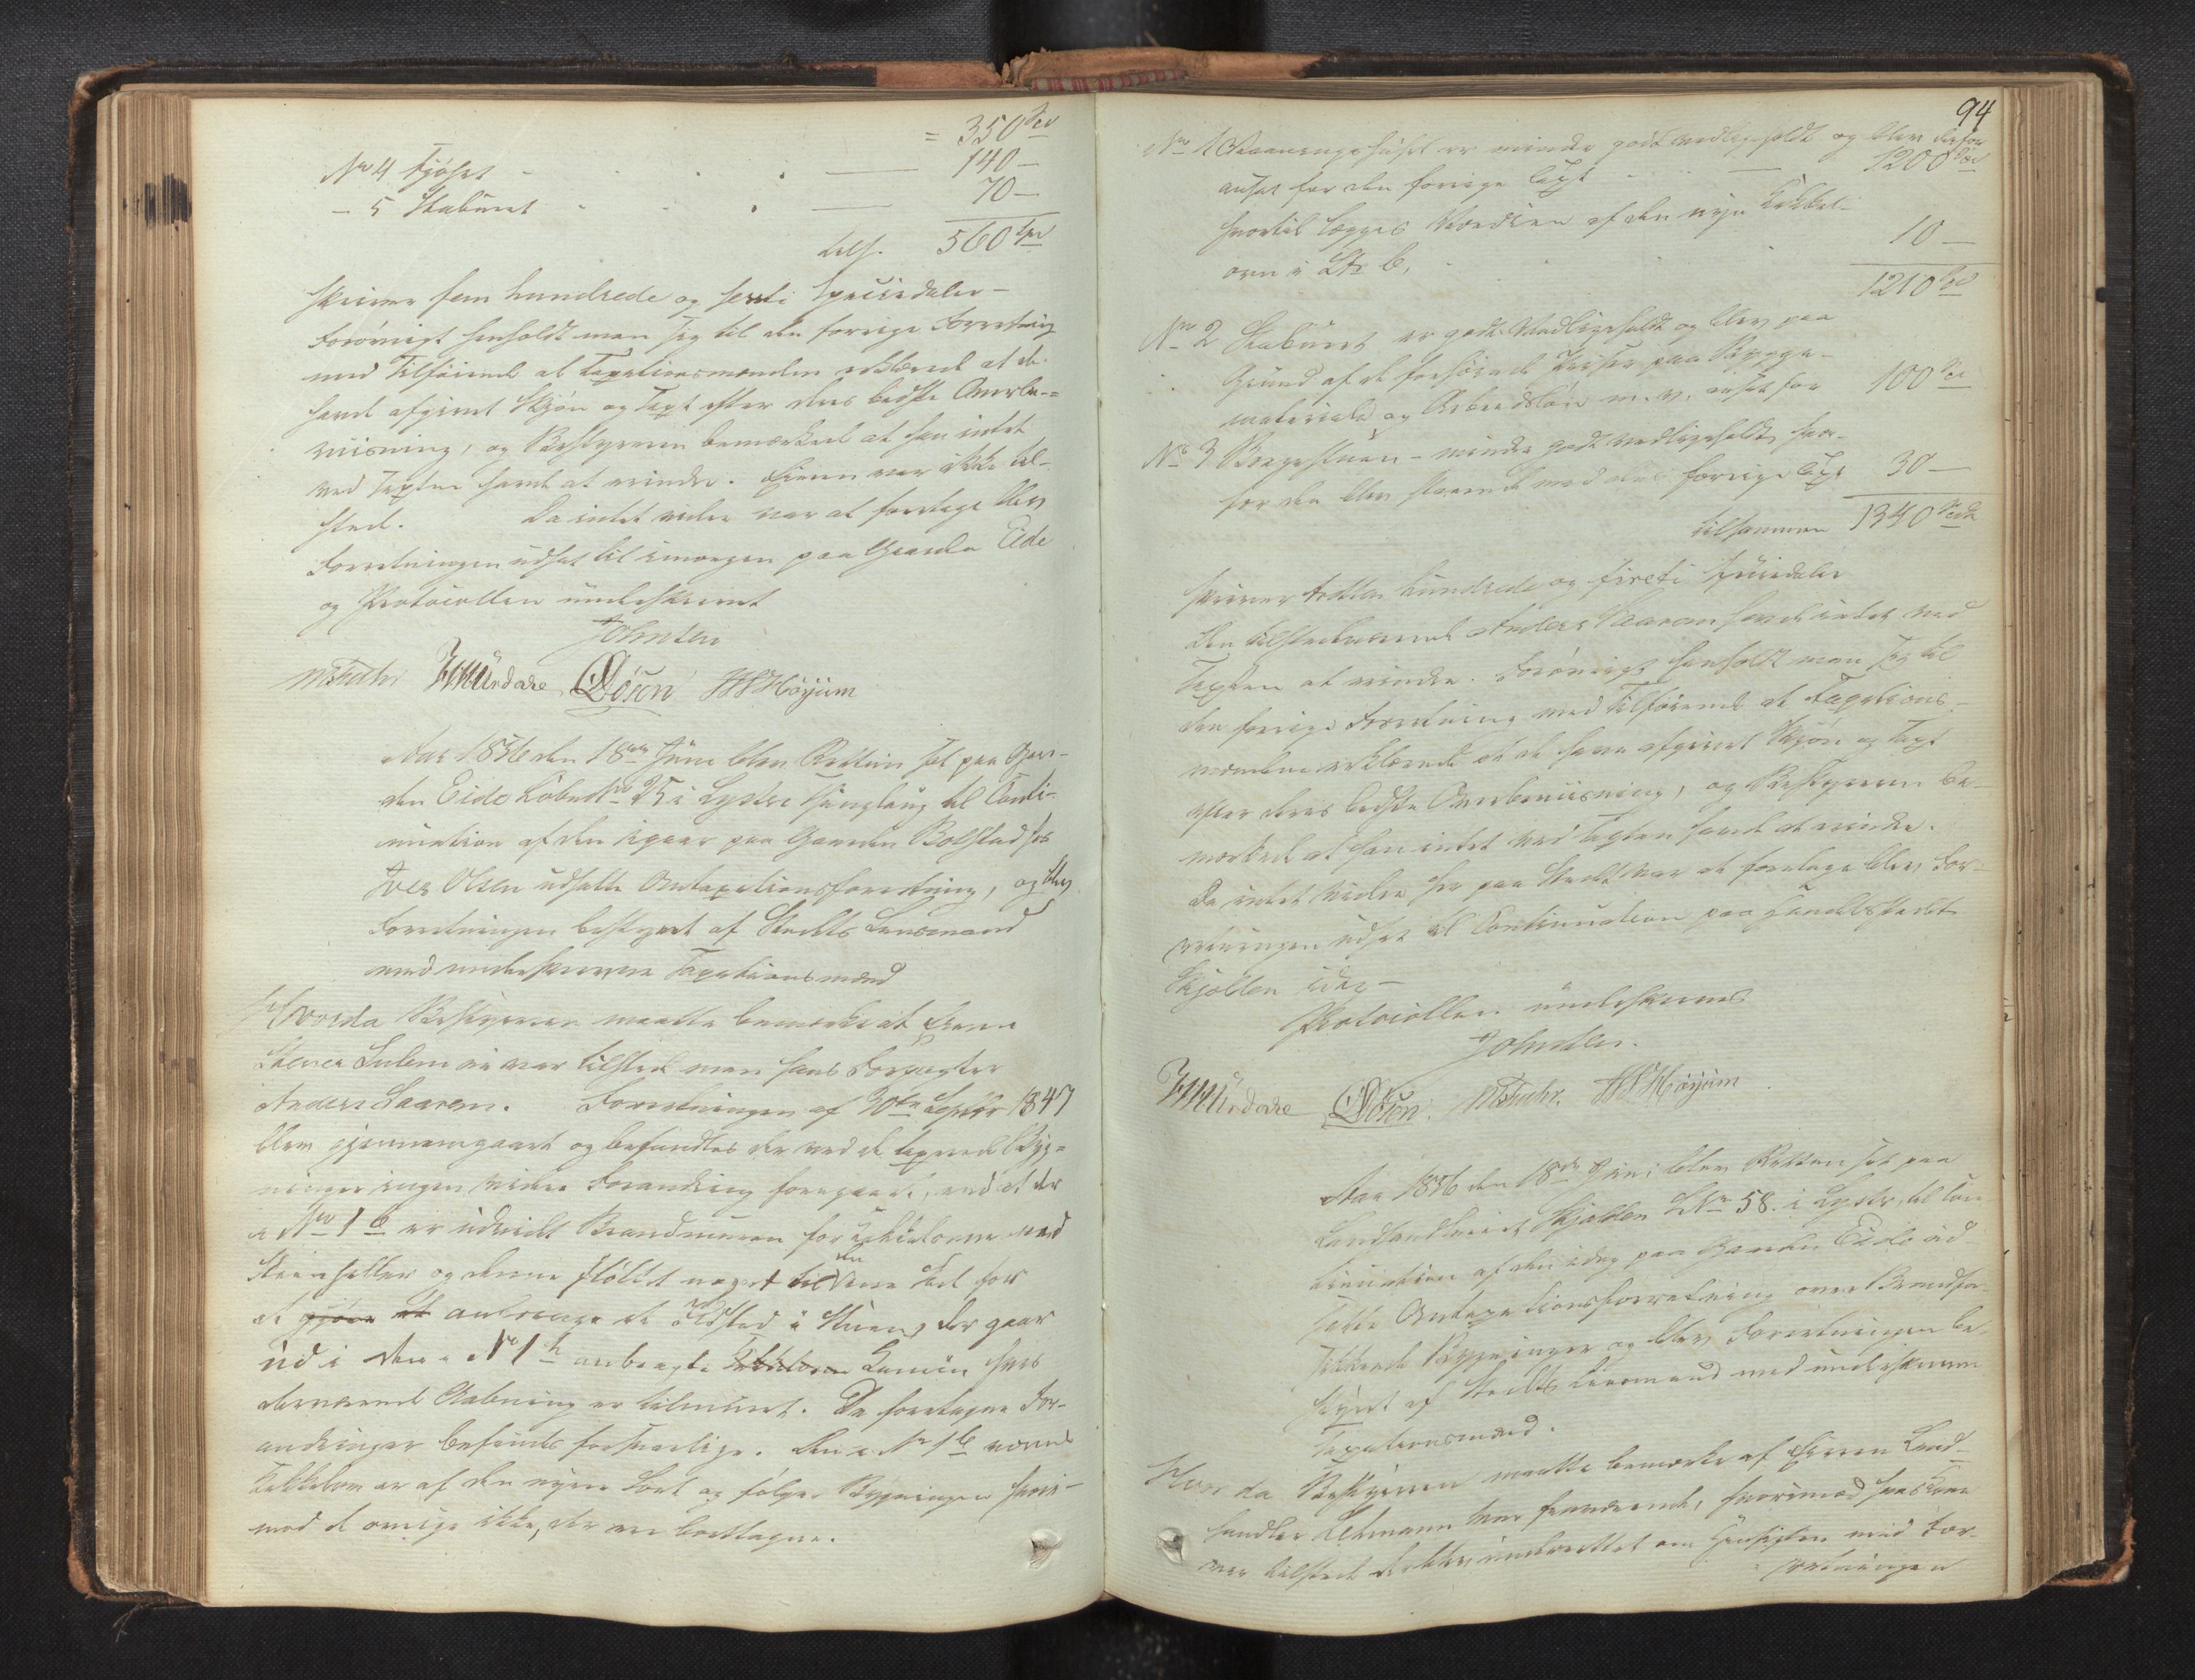 = 350 Spd
No 4 Fjöset - - - 140 —
— 5 Stabüret - - - 70 —
tils. 560 Spd
skriver fem hundrede og sexti Speciedaler —
Forövrigt henholdt man sig til den forrige Forretning
med Tilföiende at Taxationsmændene erklærede at de
havde afgivet Skjön og Taxt efter deres bedste Overbe-
viisning, og Bestyreren bemærkede at han intet
ved Taxten havde at erindre. Eieren var ikke til-
stede. Da intet videre var at foretage blev
Forretningen udsat til imorgen paa Gaarden Eide
og Protocollen underskrevet
Johnsen
HP Höyüm
Aar 1856 den 18de Juni blev Retten sat paa Gaar-
den Eide Löbe No 25 i Lyster Thinglaug til Conti-
nuation af den igaar paa Gaarden Bolstad hos
Iver Olsen udsatte Omtaxationsforretning, og blev
Forretningen bestyret af Stedets Lensmand
med underskrevne Taxationsmænd
Hvorda Bestyreren maatte bemærke at Eieren
ei var tilstede men hans Forpagter
Anders . Forretningen af 30te Septbr 1847
blev gjennemgaaet og befandtes der ved de taxerede Byg-
ninger ingen videre Forandring foregaaet, end at der
i No 1 b er udvidt Brandmuren for Kakkelovne med
Steenheller og denne flöttet noget til den ene Side for
at gjöre et anbringe et Ildsted i Stuen, der gaar
ud i den i No 1 h anbragte Kamin hvis
derværende Aabning er tilmuret. De foretagne For-
andringer befandtes forsvarlige. Den i No 1 b værende
Kakkelovn er af den nyere Sort og fölger Bygningen hvori-
mod de övrige ikke, der ere borttagne.
94
No 1 Vaaningshüset er mindre godt vedligeholdt og blev derfor
ansat for den forrige Taxt - - 1200 Spd
hvortil lægges Værdien af den nye Kakkel-
ovn i Litr b, - - - 10 —
1210 Spd
No 2 Stabüret er godt vedligeholdt og blev paa
Grund af de forhöiede Priser paa Bygge-
materiale og Arbeidslön m. v. ansat for 100 Spd
No 3 Borgestuen - mindre godt vedligeholdt, hvor-
for den blev staaende med den forrige Taxt 30 —
tilsammen 1340 Spd
skriver tretten hundrede og fireti Speciedaler
Den tilstedeværende Anders havde intet ved
Taxten at erindre. Forövrigt henholdt man sig til
den forrige Forretning med Tilföiende at Taxations-
mændene erklærede at de have afgivet Skjön og Taxt
efter deres bedste Overbeviisning, og Bestyreren be-
mærkede at han intet ved Taxten havde at erindre.
Da intet videre her paa Stedet var at foretage blev For-
retningen udsat til Continuation paa Handelsstedet
Skjolden idag —
Protocollen underskreves
Johnsen.
HP Höyüm
Aar 1856 den 18de Juni blev Retten sat paa
Landhandleriet Skjolden LNo 58 i Lyster, til Con-
tinuation af den idag paa Gaarden Eide ud-
satte Omtaxationsforretning over Brandfor-
sikkrede Bygninger og blev Forretningen be-
styret af Stedets Lensmand med underskrevne
Taxationsmænd.
Hvor da Bestyreren maatte bemærke at Eieren Land-
handler Lehmann var fraværende, hvorimod hans Kone
var tilstede der blev underrettet om Hensigten med For-
retningen